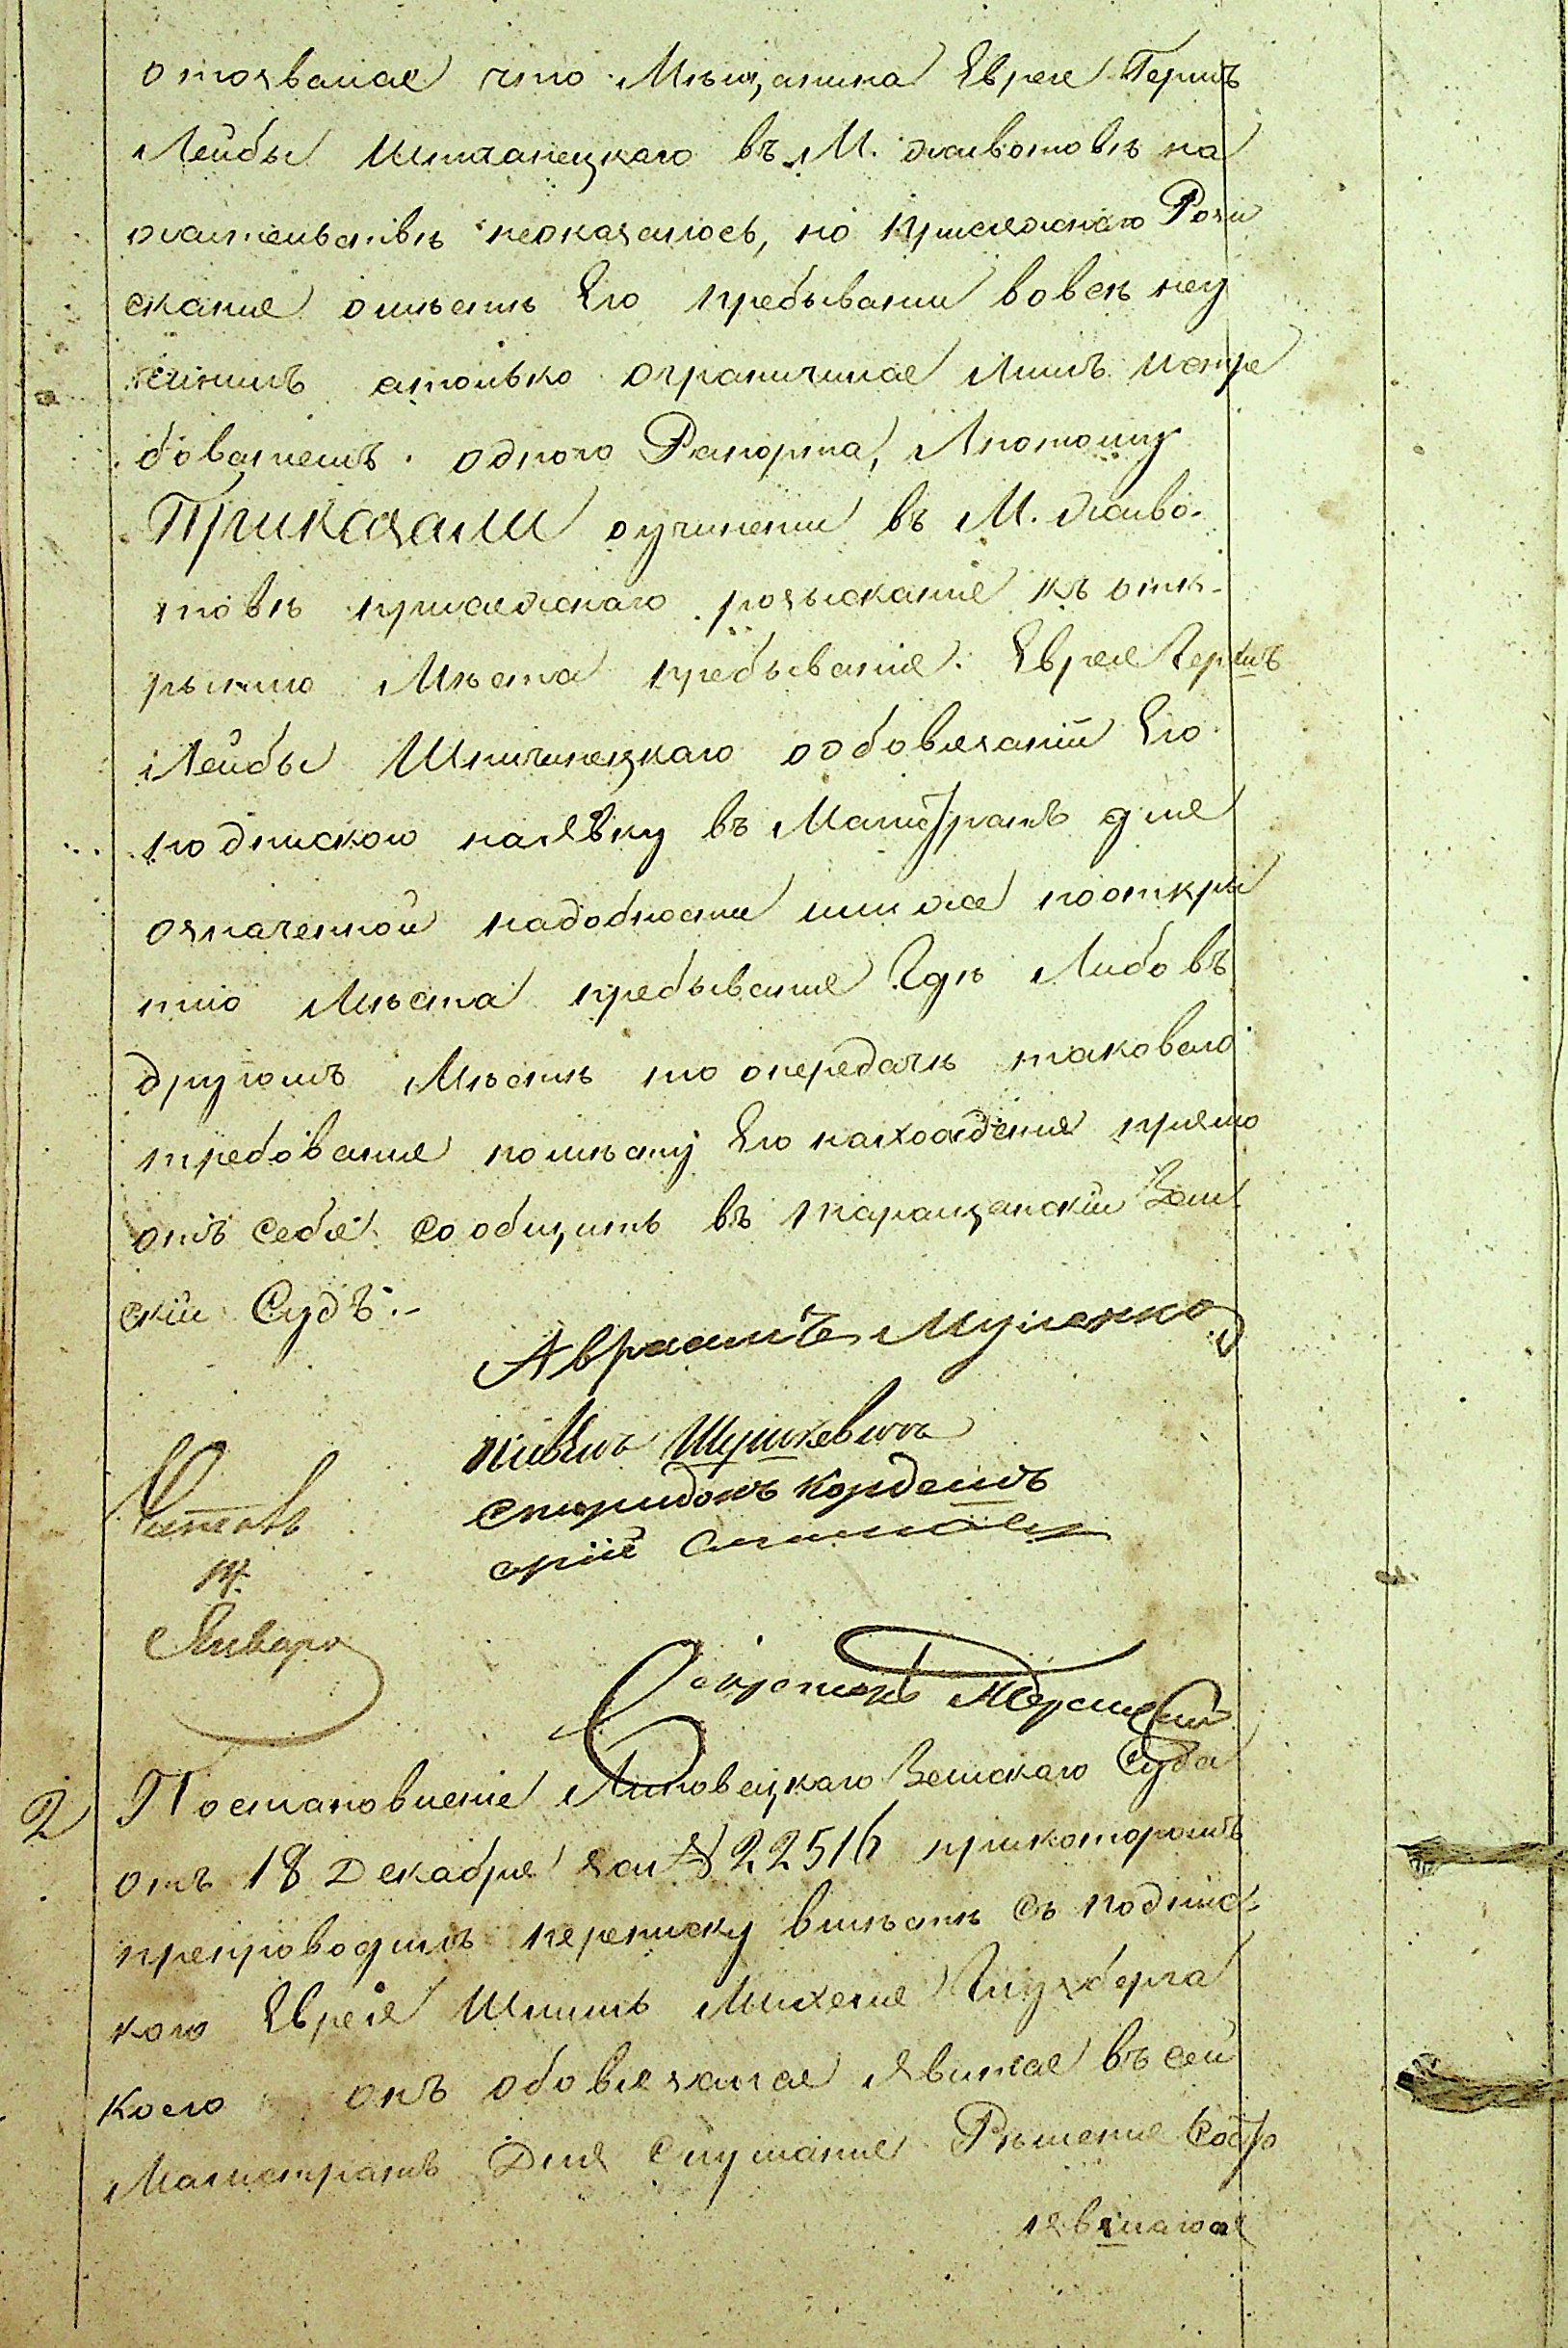 отозвался что Мѣщанина Еврея Гершъ
Лейбы Шпичанецкаго въ М. Животовѣ на
жительствѣ неоказалось, но присяжнаго Рози
сканія омѣстѣ Его пребыванія вовсѣ неу
чинилъ атолько ограничился лишъ истре
бованіемъ одного Рапорта, Апотому
Приказали оучиненіи въ М. Живо-
товѣ присяжнаго розысканія къ отк-
рытію Мѣста пребыванія Еврея Гершъ
Лейбы Шпичинецкаго ообовязаніи Его
подпискою наявку въ Магистратъ для
означенной надобности или же пооткры
тію Мѣста пребыванія Гдѣ Либо въ
другомъ Мѣстѣ то опередачѣ таковаго
требованія помѣсту Его нахожденія прямо
отъ себя сообщить въ Таращанскій Зем
скій Судъ.-
Аврамъ
Шушкевичъ
Спиридонъ Корделъ
Читалъ
14.
Января
Секретарь
2 Постановленіе Липовецкаго Земскаго Суда
отъ 18 Декабря за № 22516 прикоторомъ
препроводилъ переписку вмѣстѣ съ подпис
кою Еврея Шмиль Михеля Глузберга
коею онъ обовязался явится въ сей
Магистратъ Для Слушанія Рѣшенія